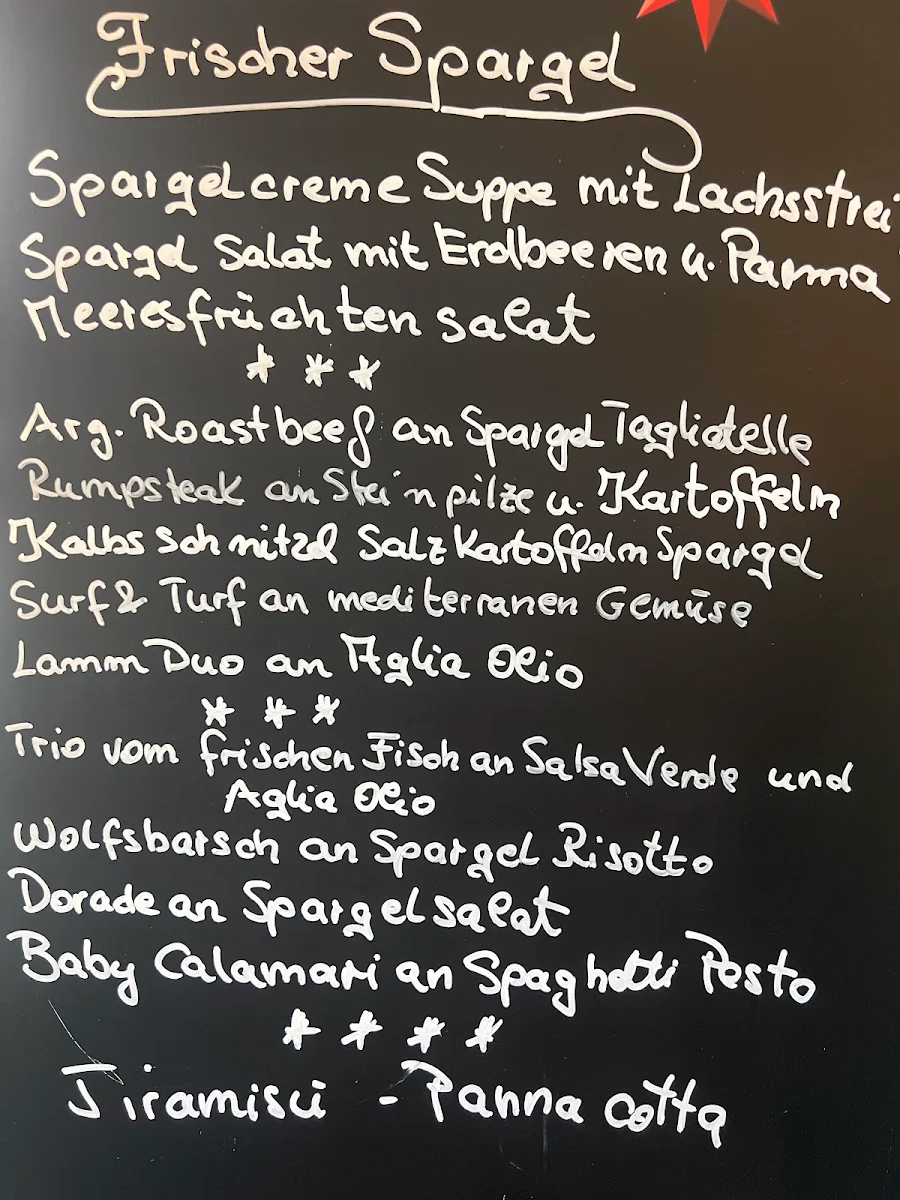 Frischer Spargel
Spargelcreme Suppe mit Lachsstrei
Spargel Salat mit Erdbeeren u. Parma
Meeresfrüchten salat
* * *
Arg. Roastbeef an Spargel Tagliatelle
Rumpsteak an Steinpilze u. Kartoffeln
Kalbsschnitzel Salzkartoffeln Spargel
Surf & Turf an mediterranen Gemüse
Lamm Duo an Aglia Olio
* * *
Trio vom frischen Fisch an Salsa Verde und
Aglia Olio
Wolfsbarsch an Spargel Risotto
Dorade an Spargelsalat
Baby Calamari an Spaghetti Pesto
* * * *
Tiramisü - Panna cotta